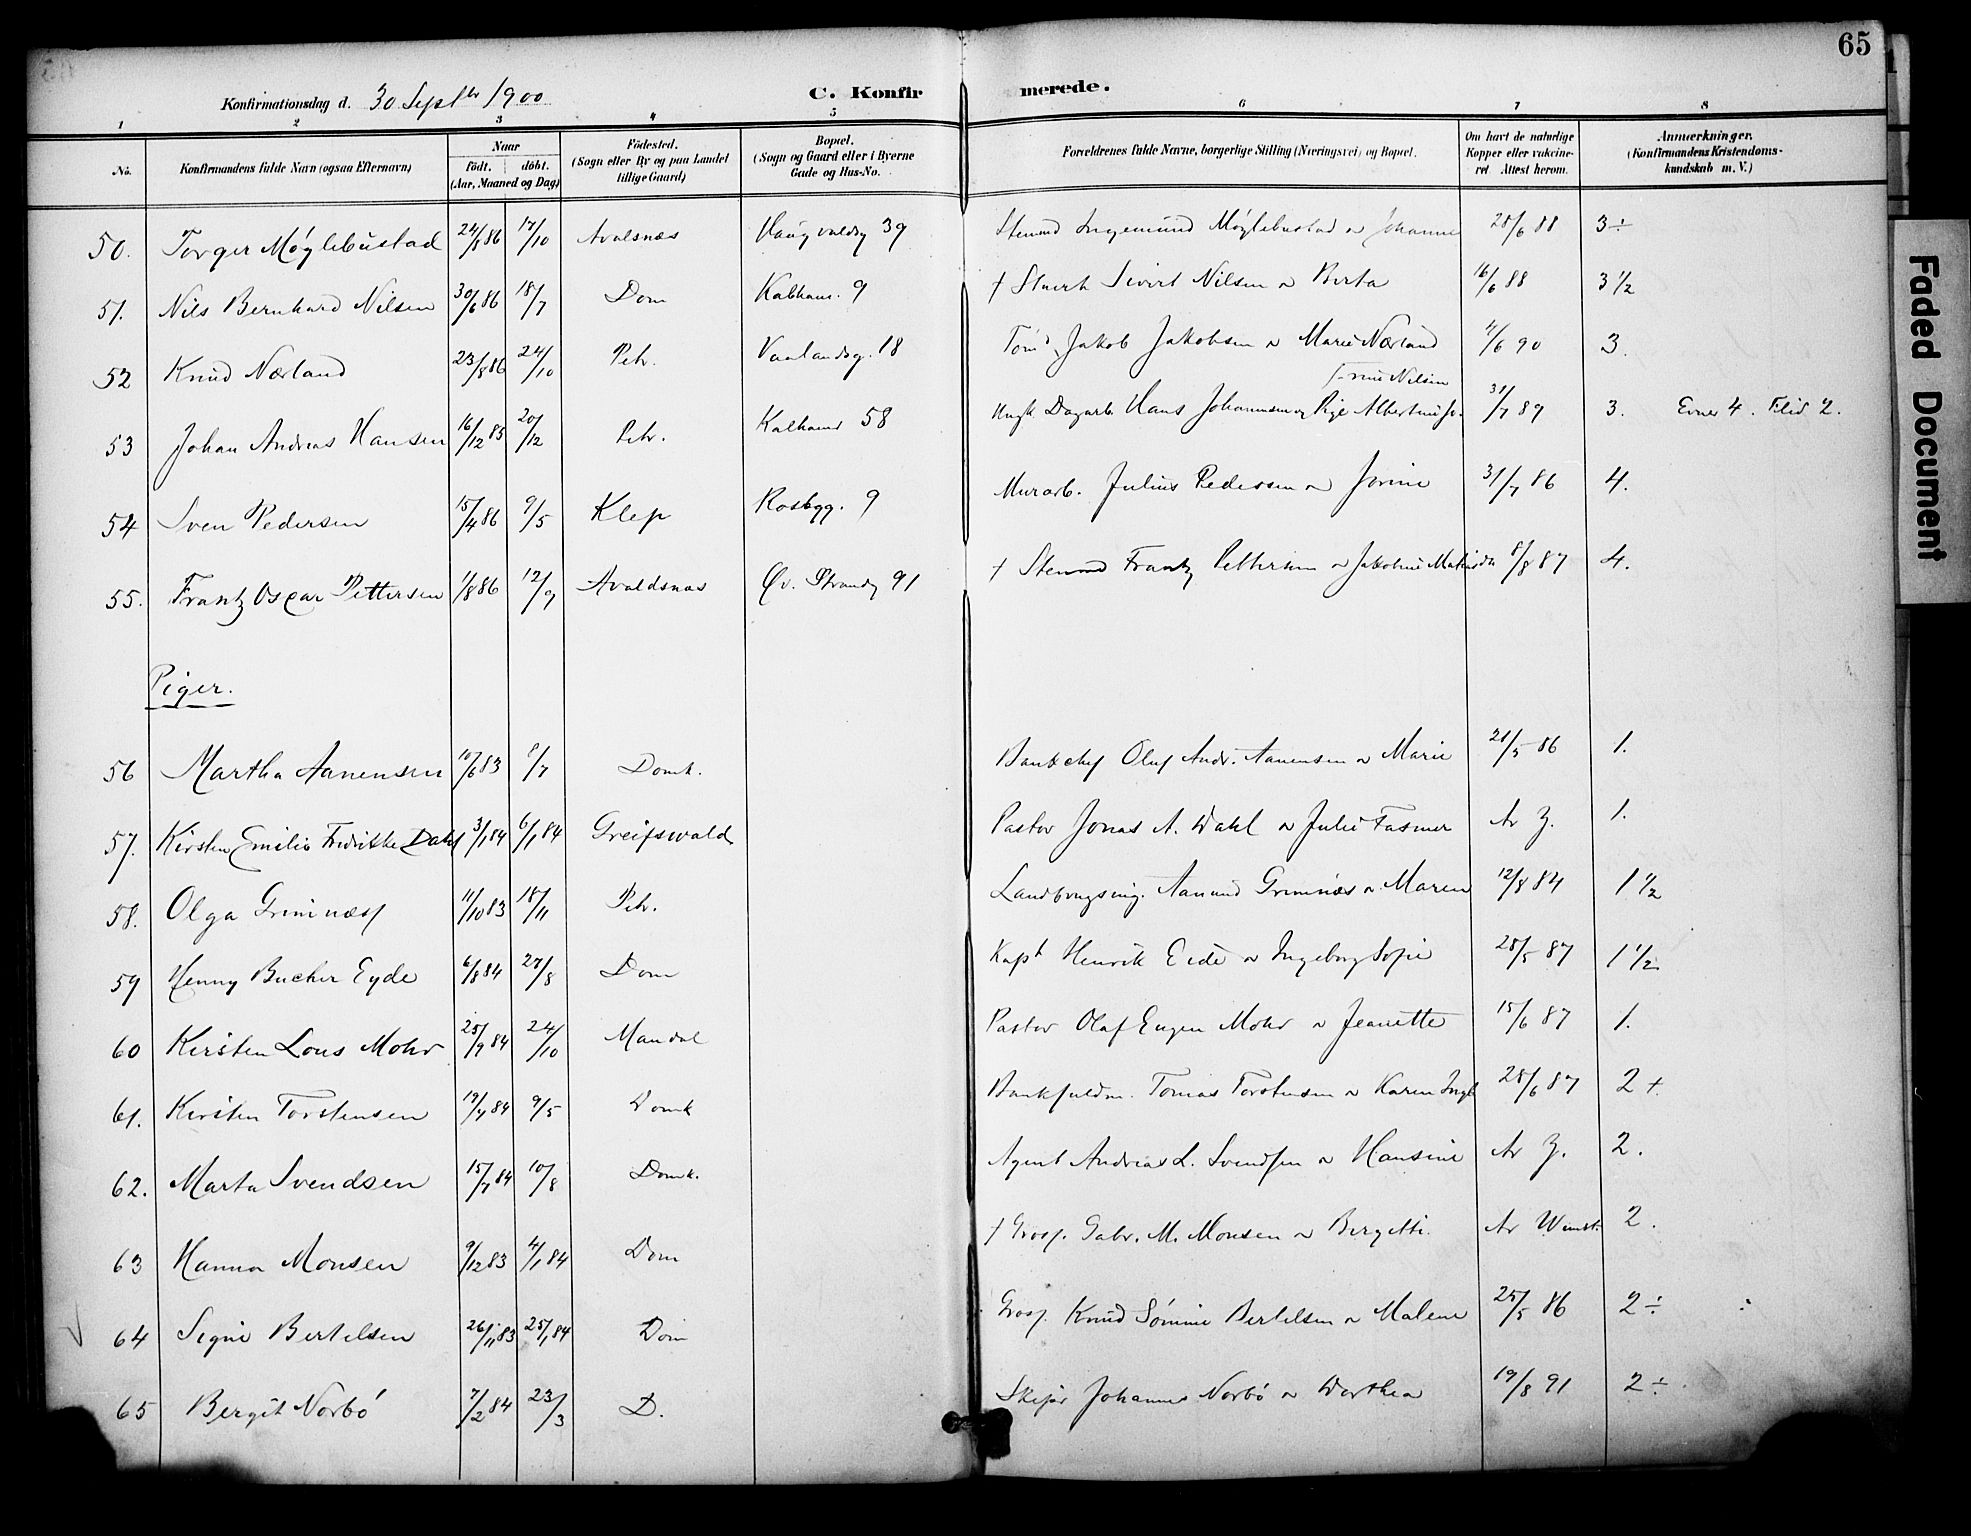 65
Konfirmationsdag d. 30 Septbr 1900
C. Konfirmerede.
1 2 3 4 5 6 7 8
No. Konfirmandens fulde Navn (ogsaa Efternavn) Naar født. døbt. (Aar, Maaned og Dag) Fødested. (Sogn eller By og paa Landet tillige Gaard) Bopæl. (Sogn og Gaard eller i Byerne Gade og Hus-No. Forældrenes fulde Navne, borgerlige Stilling (Næringsvei) og Bopæl. Om havt de naturlige Kopper eller vakcineret. Attest herom. Anmærkninger. (Konfirmandens Kristendomskundskab m. V.)
50. Torger Møglebustad 24/8 86 17/10 Avalsnæs Haugvaldsg 39 Stenmd Ingemund Møglebustad o Johanne 28/6 88 3÷
51. Nils Bernhard Nilsen 30/6 86 18/7 Dom Kalham. 9 † Sivert Nilsen o Berta 16/6 88 3 1/2
52 Knud Nærland 23/8 86 24/10 Petr. Vaalandsg. 18 Tømd Jakob Jakobsen o Marie Nærland 4/6 90 3.
53 Johan Andreas Hansen 16/12 85 20/12 Petr. Kalhamr 58 Ungk Dagarb. Hans Johannesen og Pige Albertine Nilsen 31/7 89 3. Evner 4. Flid 2.
54 Sven Pedersen 15/4 86 9/5 Klep Rosbgg. 9 Murarb. Julius Pedersen o Jorine 31/7 86 4.
55. Frantz Oscar Pettersen 1/8 86 12/9 Avaldsnæs Øv. Strandg 91 † Stenmd Frantz Pettersen o Jakobine Matilda 8/8 87 4.
Piger.
56 Martha Aanensen 10/6 83 8/7 Domk. Bankchef Oluf Andr. Aanensen o Marie 21/5 86 1.
57. Kirsten Emilie Fredrikke Dahl 3/1 84 6/1 84 Greifswald Pastor Jonas A. Dahl o Julie Fasmer Ar Z. 1.
58. Olga Grimnæs 11/10 83 18/11 Petr. Landbrugsing. Aanund Grimnæs o Maren 12/8 84 1 1/2
59 Henny Bucher Eyde 6/8 84 27/8 Dom Kapt Henrik Eide o Ingeborg Sofie 28/5 87 1 1/2
60 Kirsten Lous Mohr 25/9 84 24/10 Mandal Pastor Olaf Eugen Mohr o Jeanette 15/6 87 1.
61. Kirsten Torstensen 19/4 84 9/5 Domk Bankfuldm. Tomas Torstensen o Karen Ingb 28/6 87 2+.
62. Marta Svendsen 15/7 84 10/8 Domk. Agent Andreas L. Svendsen o Hansine Ar Z. 2.
63 Hanna Monsen 9/12 83 4/1 84 Dom † Gross. Gabr. M. Monsen o Bergette. Ar 2.
64 Signe Bertelsen 26/11 83 25/1 84 Dom Gross. Knud Sømme Bertelsen o Malene 25/5 86 2÷
65 Bergit Norbø 7/2 84 23/3 D. Skipr Johannes Norbø o Dorthea 19/8 91 2÷
Faded Document